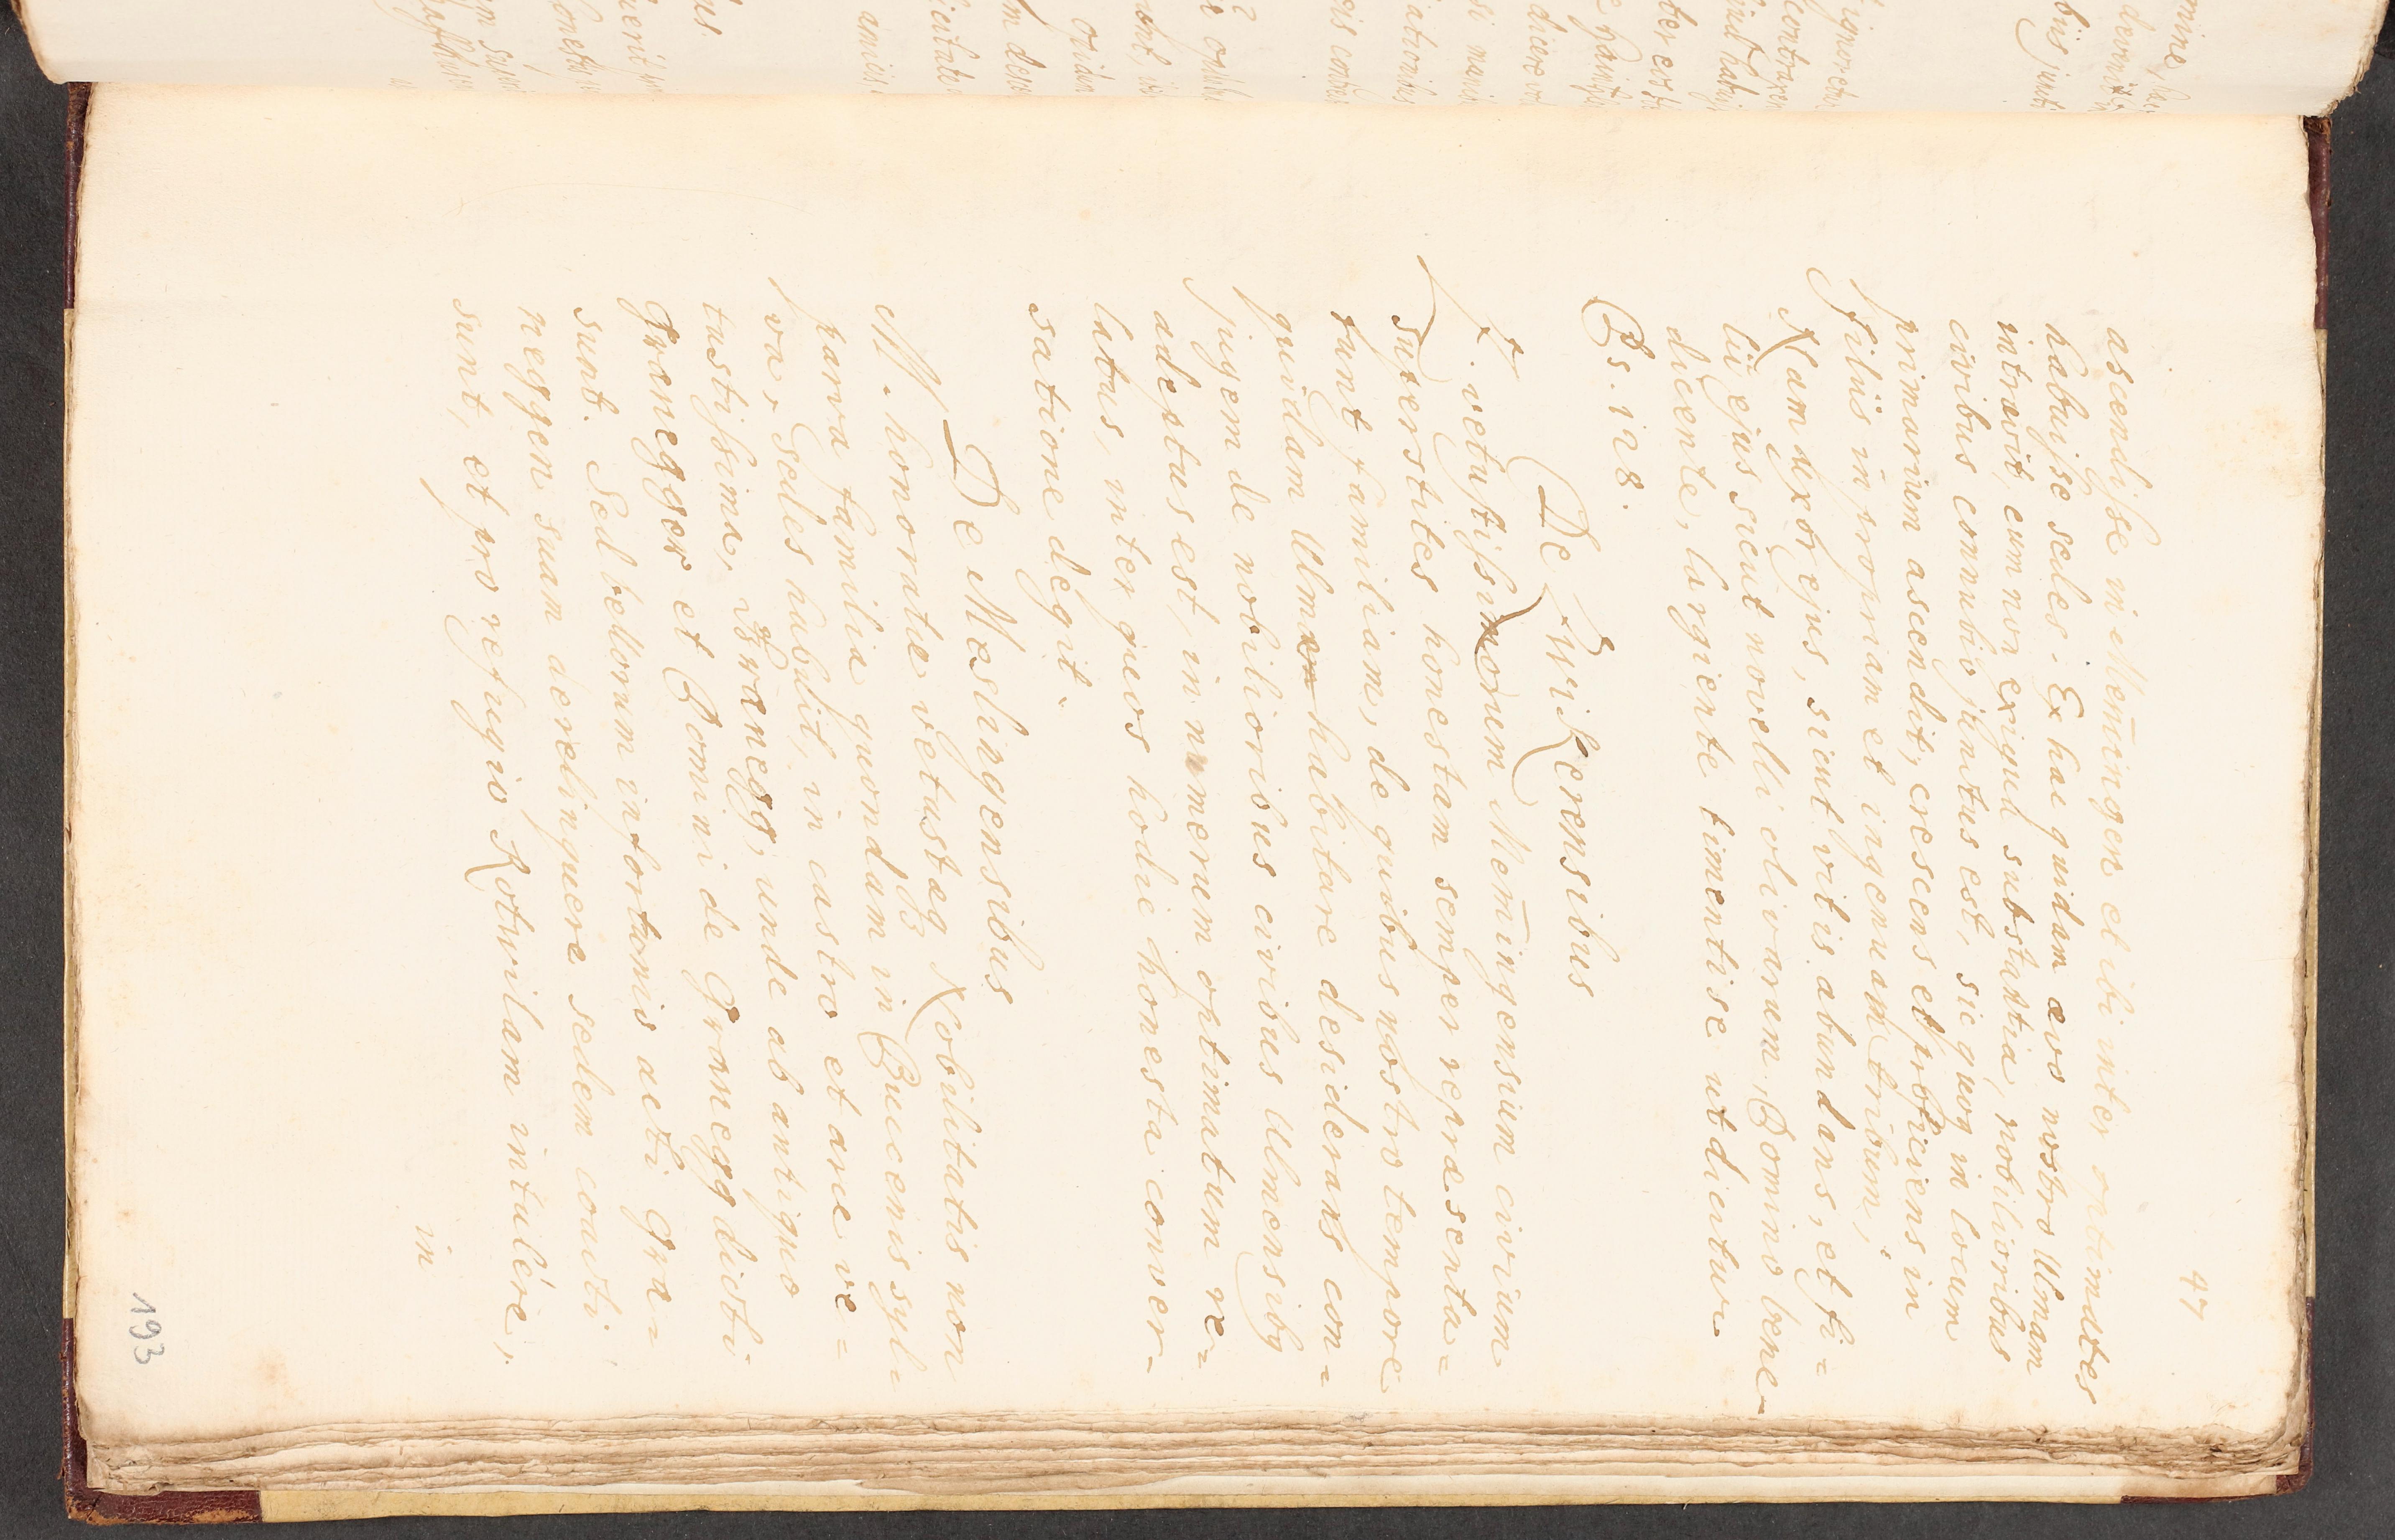 47
ascendisse in Mem̄ingen et ibi inter optimates
habuisse sedes. Ex hac quidam ævo nostro Ulmam
intravit, cum non exigua substantia, nobilioribus
civibus connubio junctus est, sic quoq in locum
primarium ascendit, crescens et proficiens in
filiis in propriam et ingenuam tribum,
Nam uxor ejus, sicut vitis abundans, et fi=
lii ejus sicut novelli olivarum, Domino bene=
dicente, largiente timentise ut dicitur
Ps. 128.
De Zwikerensibus
Z. vetustissimorum Mem̄ingensium civium
superstites honestam semper repræsenta=
runt familiam, de quibus nostro tempore
quidam Ulmæ habitare desiderans con=
jugem de nobilioribus civibus Ulmensibq
adeptus est, in numerum optimatum re=
latus, inter quos hodie honesta conver=
satione degit.
De Meslingensibus
M. honoratæ vetustaq Nobilitatis non
parva familia quondam in Buccenis syl=
va, sedes habuit, in castro et arce ve=
tustissima, Granegg, unde ab antiquo
Granegger et Domini de Granegg dicti
sunt. Sed bellorum infortuniis acti Gra=
neggen suam derelinquere sedem coacti
sunt, et pro refugio Rotwilam intulére,
in
193